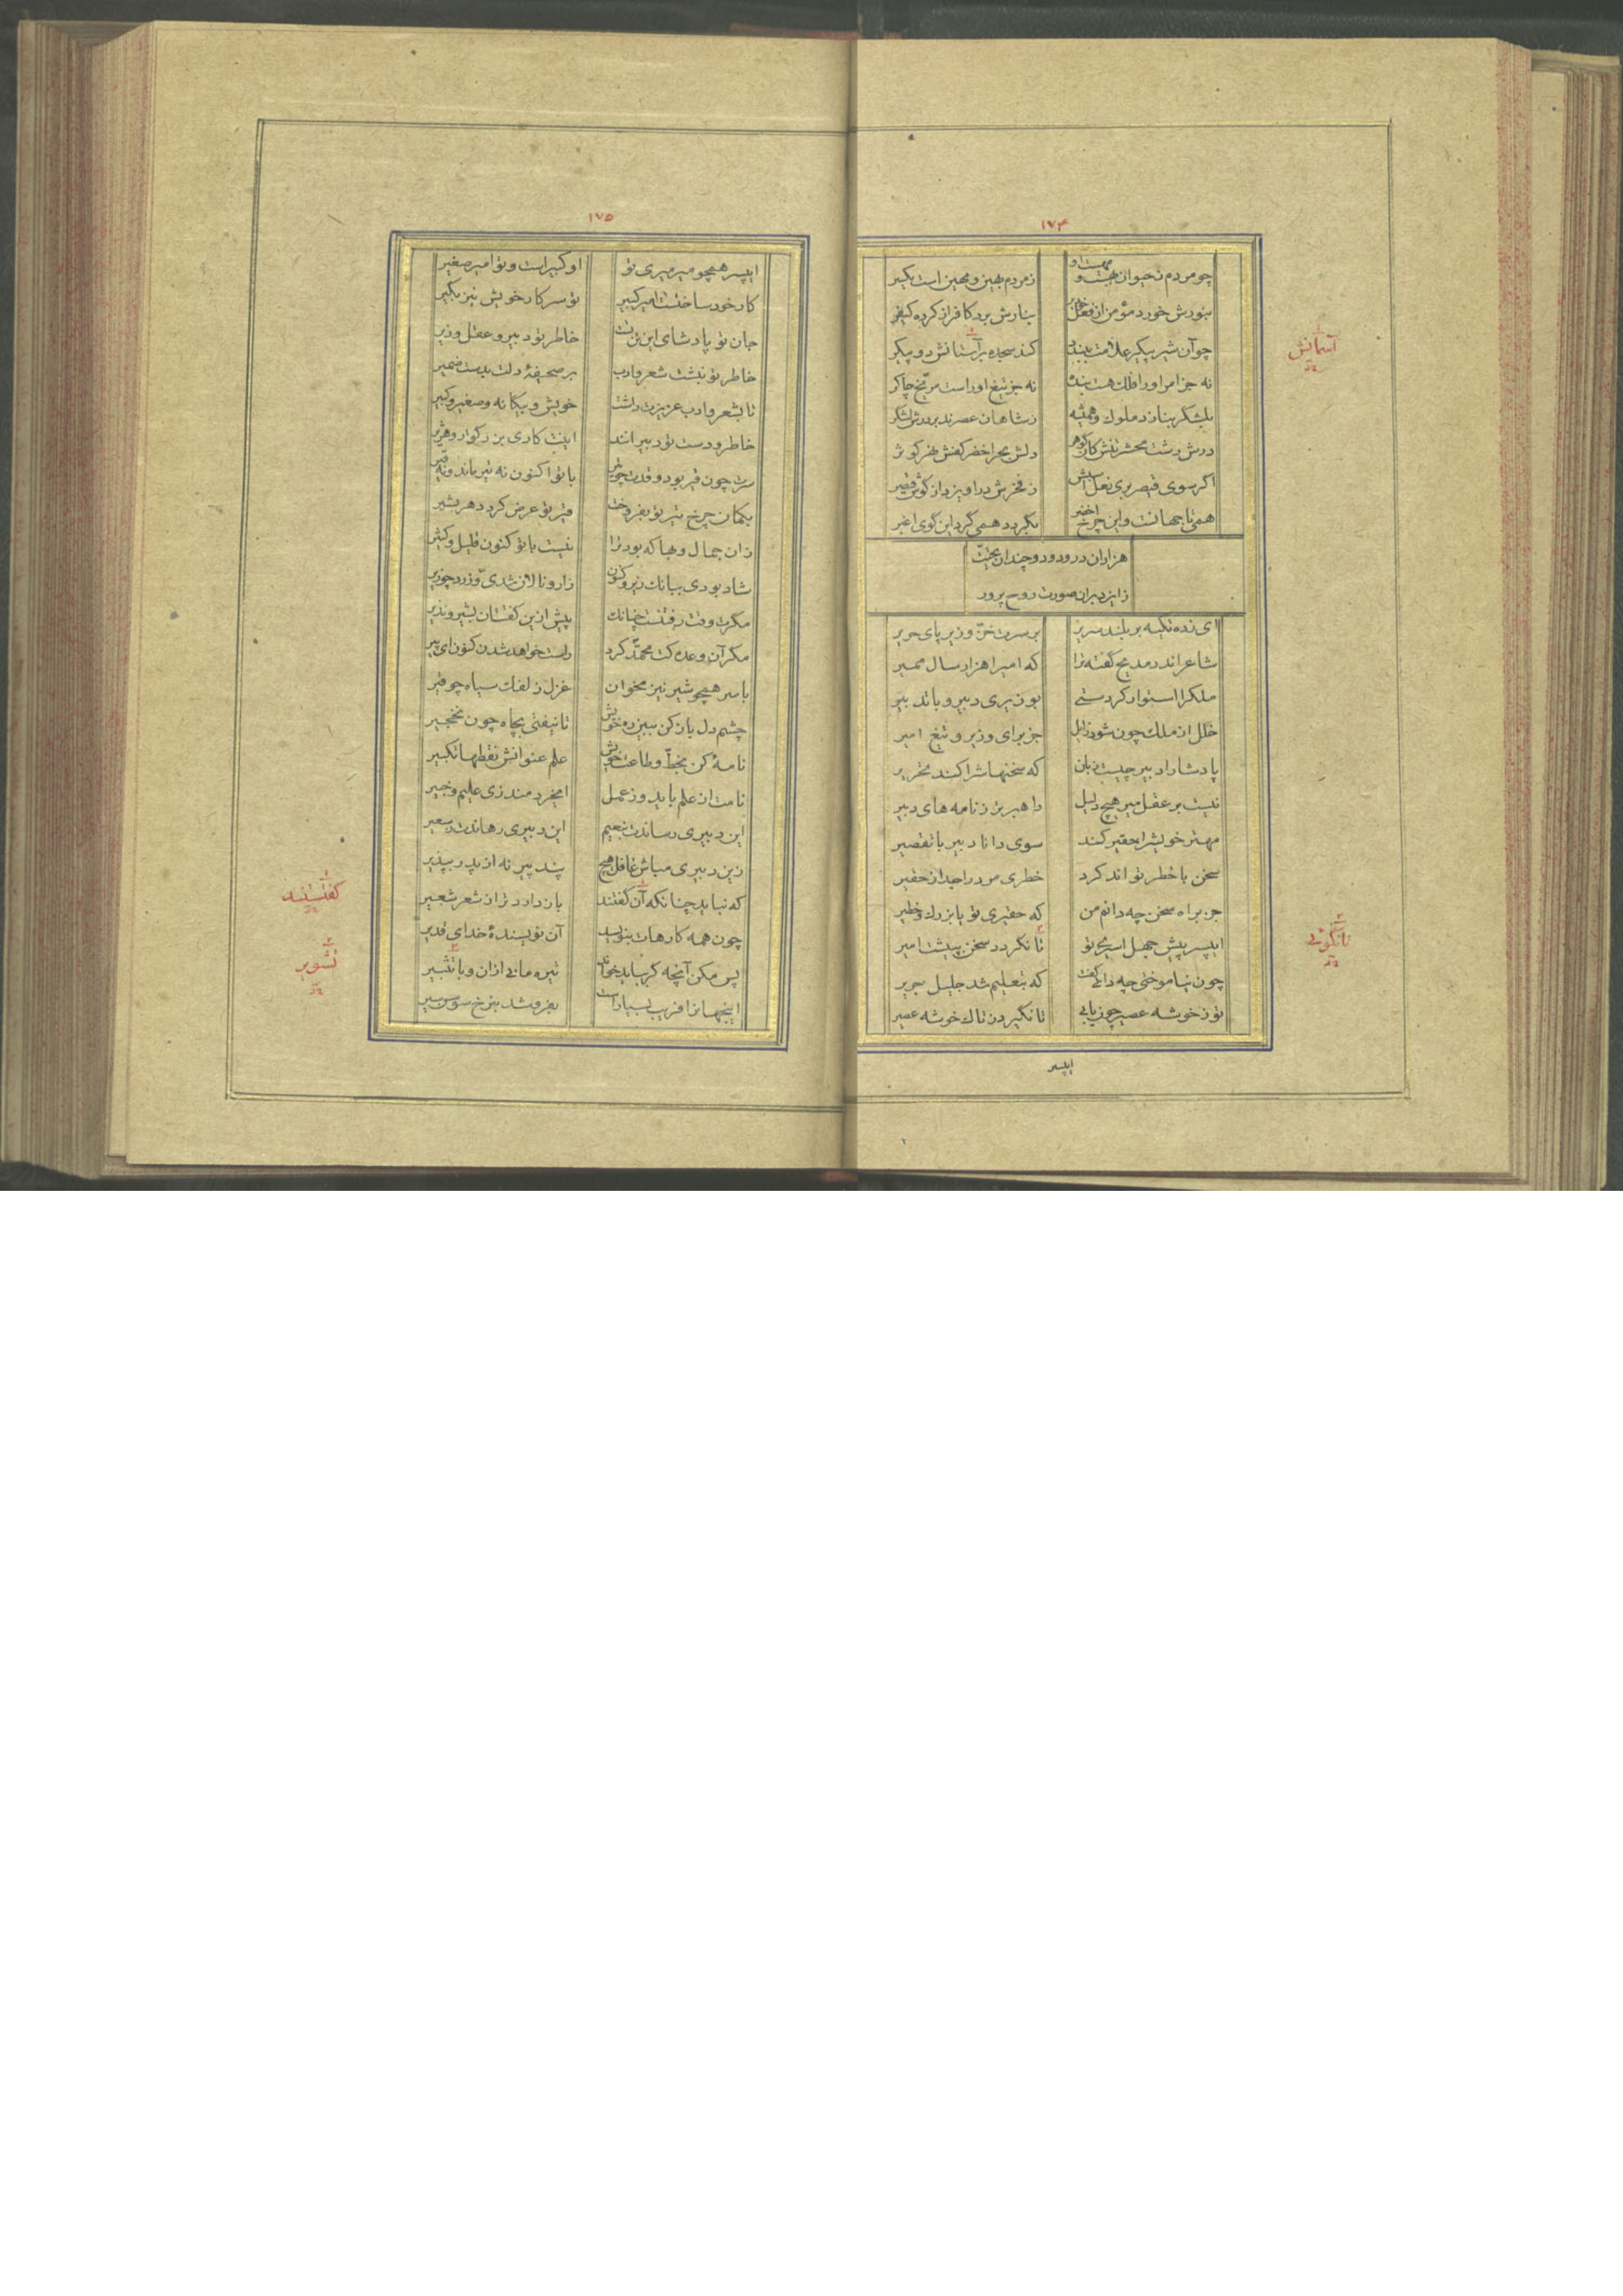 ۱۷۴
چو مردم ز حیوان بهست و مهست او
ز مردم بهین و مهین است یکسر
بنورش خورد مؤمن از فعل خود بر
بنارش برد کافر از کرده کیفر
چو آن شیر پیکر علامت ببندد
کند سجده بر آستانش دو پیکر
نه جز امر او را فلک هست بنده
نه جز تیغ او راست مریخ چاکر
بلشکر بنازد ملوک و همیشه
ز شاهان عصرند بر درش لشکر
درش دشت محشر تنش کان گوهر
دلش بحر اخضر کفش نهر کوثر
اگر سوی قیصر بری نعل اسبش
ز فخرش در آویزد از گوش قیصر
همی تا جهانست و این چرخ اخضر
بگردد همی گرد این گوی اغبر
هزاران درود و دو چندان تحیت
ز ایزد بران صورت روح پرور
ای زده تکیه بر بلند سریر
بر سرت خز و زیر پای حریر
شاعر اندر مدیح گفته ترا
که امیرا هزار سال ممیر
ملک را استوار کردستی
بوزیری دبیر و با تدبیر
خلل از ملک چون شود زایل
جز برای وزیر و تیغ امیر
پادشا را دبیر چیست زبان
که سخنهاش را کند تحریر
نیست بر عقل میر هیچ دلیل
راهبرتر ز نامه های دبیر
مهتر خویش را حقیر کند
سوی دانا دبیر با تقصیر
سخن با خطر تواند کرد
خطری مرد را جدا ز حقیر
جز براه سخن چه دانم من
که حقیری تو یا بزرگ و خطیر
ایپسر پیش جهل اسیری تو
تا نگردد سخن پیشت امیر
چون نیاموختی چه دانی گفت
که بتعلیم شد جلیل جریر
تو ز خوشه عصیر چون یابی
تا نگیرد ز تاک خوشه عصیر
ایپسر
آسمانش
تا نگوئی
۱۷۵
ایپسر همچو میر میری تو
او کبیر است و تو امیر صغیر
کار خود ساختست امیر کبیر
تو سر کار خویش نیز بگیر
جان تو پادشای این تن تست
خاطر تو دبیر و عقل وزیر
خاطر تو نبشت شعر و ادب
بر صحیفهٔ دلت بدست ضمیر
تا بشعر و ادب عزیزت داشت
خویش و بیگانه و صغیر و کبیر
خاطر و دست تو دبیرانند
اینت کاری بزرگوار و هژیر
سرت چون قیر بود و قدت چو تیر
با تو اکنون نه تیر ماند و نه قیر
بکمان چرخ تیر تو بفروخت
قیر تو عرض کرد دهر بشیر
زان جمال و بها که بود ترا
نیست با تو کنون قلیل و کثیر
شاد بودی ببانگ زیر و کنون
زار و نالان شدی و زرد چو زیر
مگرت وقت رفتنست چنانک
پیش ازین گفتت آن بشیر و نذیر
مگر آن وعده کت محمد کرد
راست خواهد شدن کنون ای پیر
با سر همچو شیر نیز مخوان
غزل زلفک سیاه چو قیر
چشم دل باز کن ببین ره خویش
تا نیفتی بچاه چون نخجیر
نامهٔ کن بخط و طاعت خویش
علم عنوانش نقطها تکبیر
نامت از علم باید و ز عمل
ای خردمند زی علیم و خبیر
این دبیری رساندت بنعیم
این دبیری رهاندت ز سعیر
زین دبیری مباش غافل هیچ
پند پیرانه از پدر بپذیر
که نباید چنانکه آن گفتند
باز دارد ترا ز شعر شعیر
چون همه کارهات بنویسد
آن نویسندهٔ خدای قدیر
پس مکن آنچه گر بباید خواند
تیره مانی ازان و با تشبیر
اینجهان را فریب بسیار است
بفروشد بنرخ سوسن سیر
گفتستند
تشویر